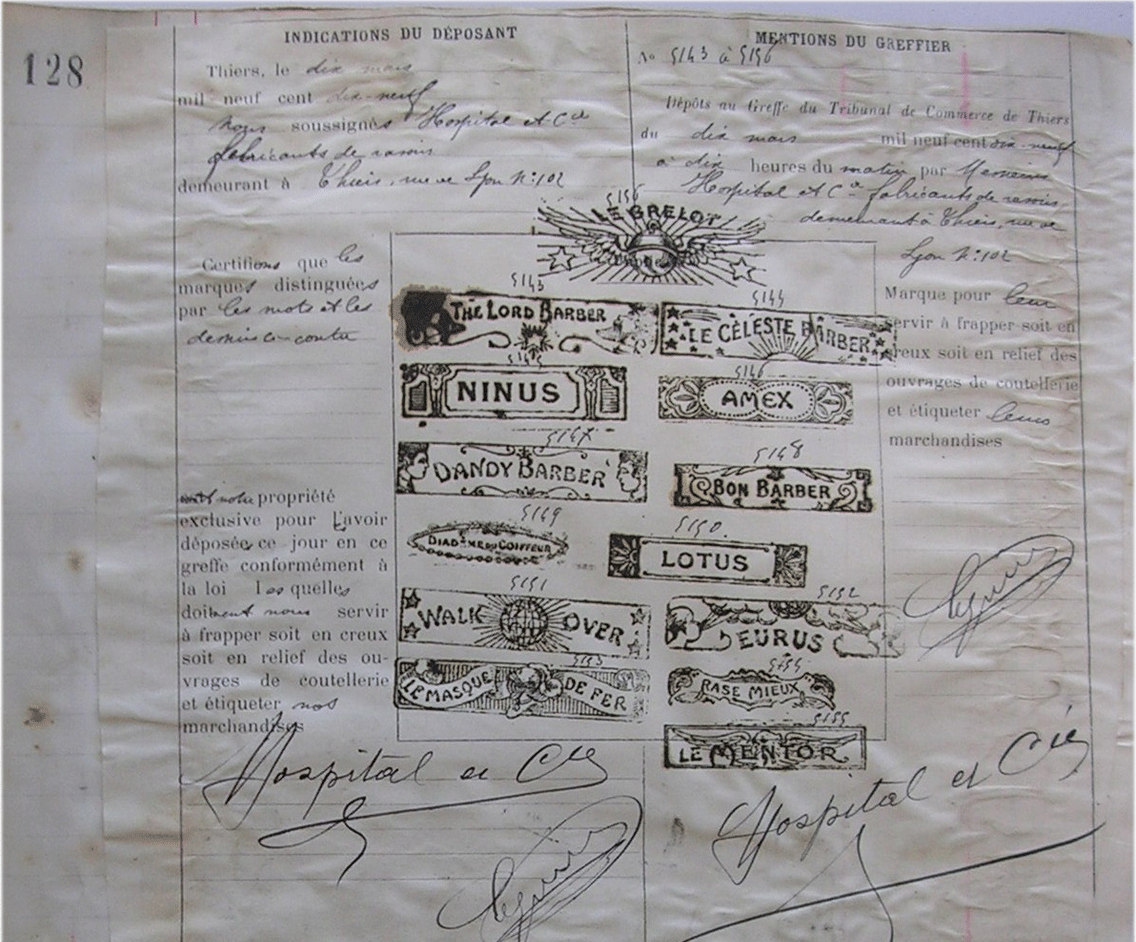 128
INDICATIONS DU DÉPOSANT
Thiers, le dix mars
mil neuf cent dix-neuf
nous soussignés Hospital et Cie
fabricants de rasoirs
demeurant à Thiers, rue de Lyon N°: 102
Certifions que les
marques distinguées
par les mots et les
dessins ci-contre
sont notre propriété
exclusive pour l'avoir
déposée ce jour en ce
greffe conformément à
la loi Lesquelles
doivent nous servir
à frapper soit en creux
soit en relief des ou-
vrages de coutellerie
et étiqueter nos
marchandises
Hospital et Cie
MENTIONS DU GREFFIER
No 5143 à 5156
Dépôts au Greffe du Tribunal de Commerce de Thiers
du dix mars mil neuf cent dix-neuf
à dix heures du matin par Messieurs
Hospital et Cie fabricants de rasoirs
demeurant à Thiers, rue de
Lyon N°: 102
Marque pour leur
servir à frapper soit en
creux soit en relief des
ouvrages de coutellerie
et étiqueter leurs
marchandises
5156
LE GRELOT
5143
THE LORD BARBER
5144
LE CÉLESTE BARBER
5145
NINUS
5146
AMEX
5147
DANDY BARBER
5148
BON BARBER
5149
DIADÈME DU COIFFEUR
5150
LOTUS
5151
WALK OVER
5152
EURUS
5153
LE MASQUE DE FER
5154
RASE MIEUX
5155
LE MENTOR
Hospital et Cie